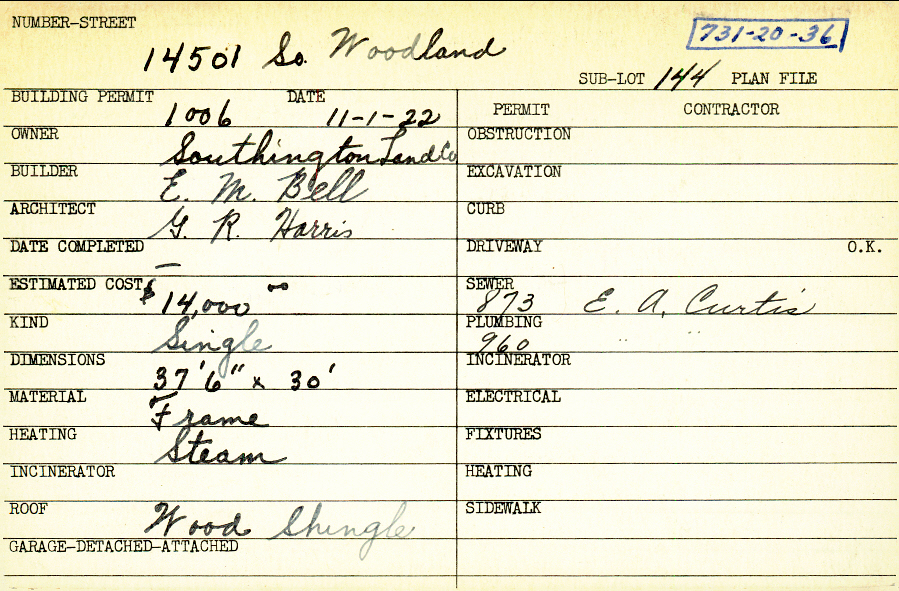 NUMBER-STREET
14501 So. Woodland
731-20-36
SUB-LOT 144 PLAN FILE
BUILDING PERMIT 1006 DATE 11-1-22
PERMIT CONTRACTOR
OWNER Southington Land Co
OBSTRUCTION
BUILDER E. M. Bell
EXCAVATION
ARCHITECT G. R. Harris
CURB
DATE COMPLETED —
DRIVEWAY O.K.
ESTIMATED COST $14,000 00
SEWER 873 E. A. Curtis
KIND Single
PLUMBING 960 " "
DIMENSIONS 37'6" x 30'
INCINERATOR
MATERIAL Frame
ELECTRICAL
HEATING Steam
FIXTURES
INCINERATOR
HEATING
ROOF Wood Shingle
SIDEWALK
GARAGE-DETACHED-ATTACHED